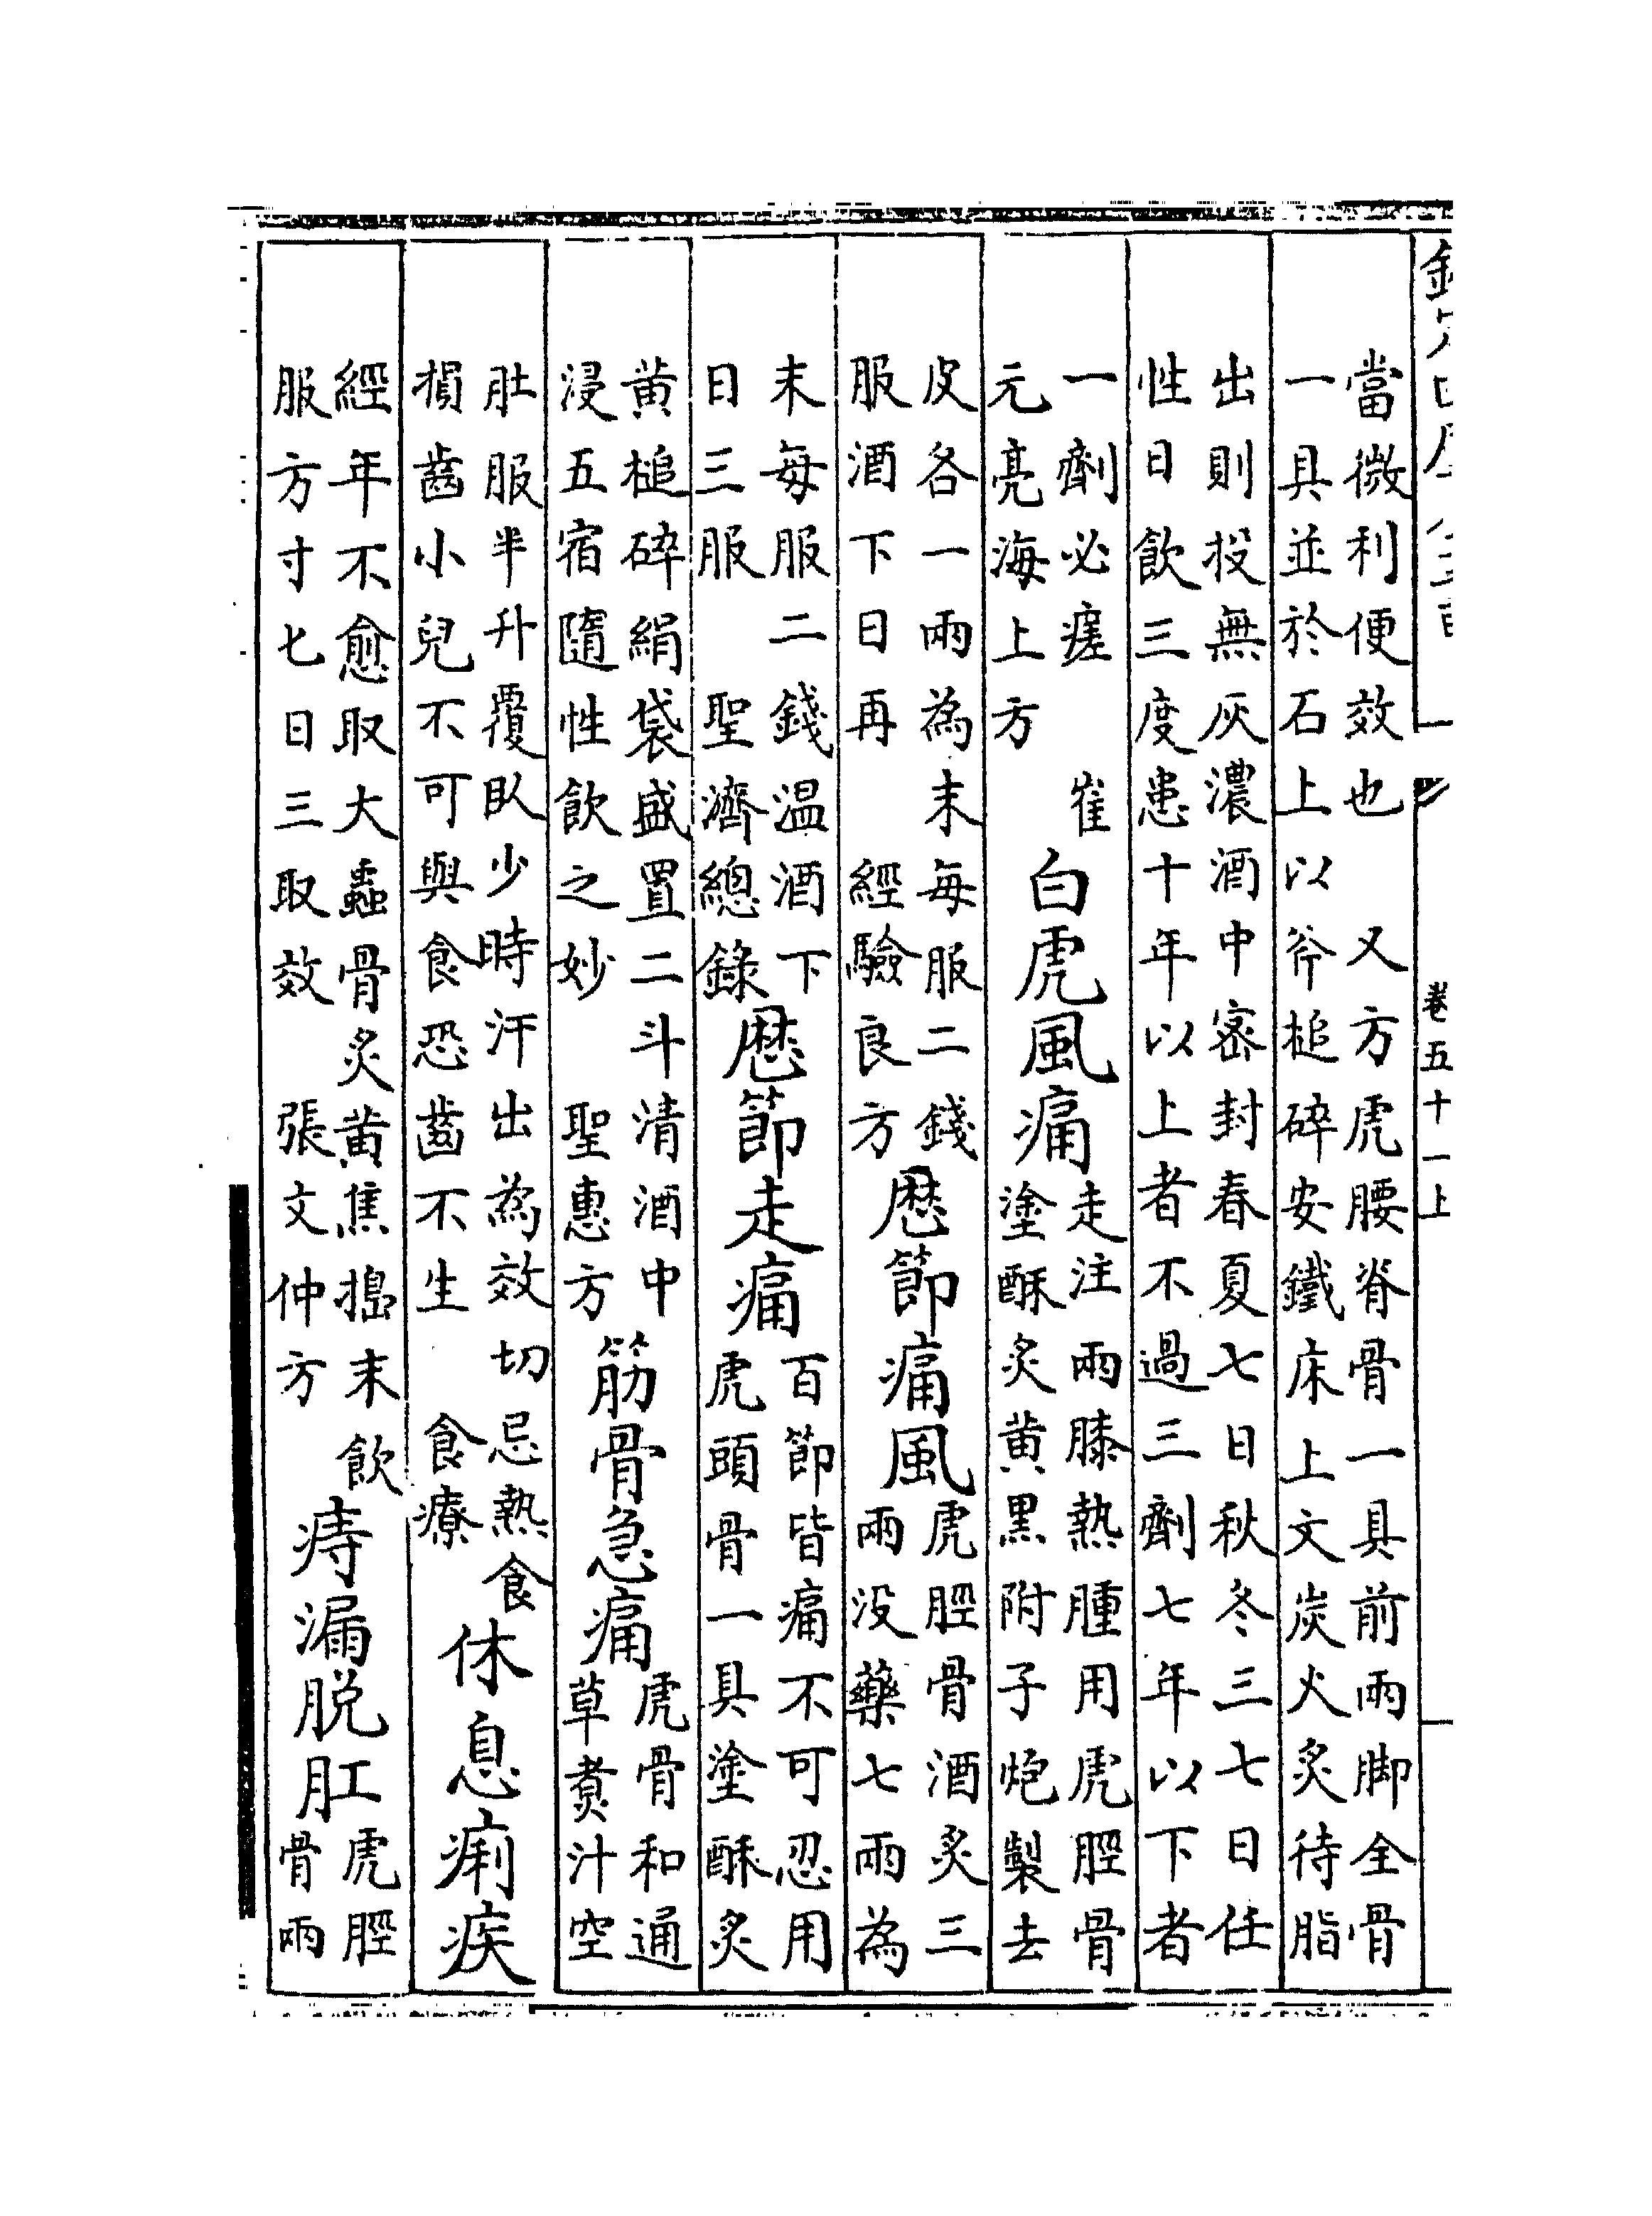 卷五十一上
當微利便效也　又方虎腰脊骨一具前兩脚全骨
一具並於石上以斧槌碎安鐵床上文炭火炙待脂
出則投無灰濃酒中密封春夏七日秋冬三七日任
性日飲三度患十年以上者不過三劑七年以下者
一劑必瘥　崔
元亮海上方
白虎風痛
走注兩膝熱腫用虎脛骨
塗酥炙黄黒附子炮製去
皮各一兩為末每服二錢
服酒下日再　經驗良方
歴節痛風
虎脛骨酒炙三
兩没藥七兩為
末每服二錢温酒下
日三服　聖濟總錄
歴節走痛
百節皆痛不可忍用
虎頭骨一具塗酥炙
黄槌碎絹袋盛置二斗清酒中
浸五宿隨性飲之妙　聖惠方
筋骨急痛
虎骨和通
草煑汁空
肚服半升覆臥少時汗出為效切忌熱食
損齒小兒不可與食恐齒不生　食療
休息痢疾
經年不愈取大蟲骨炙黄焦搗末飲
服方寸七日三取效　張文仲方
痔漏脱肛
虎脛
骨兩